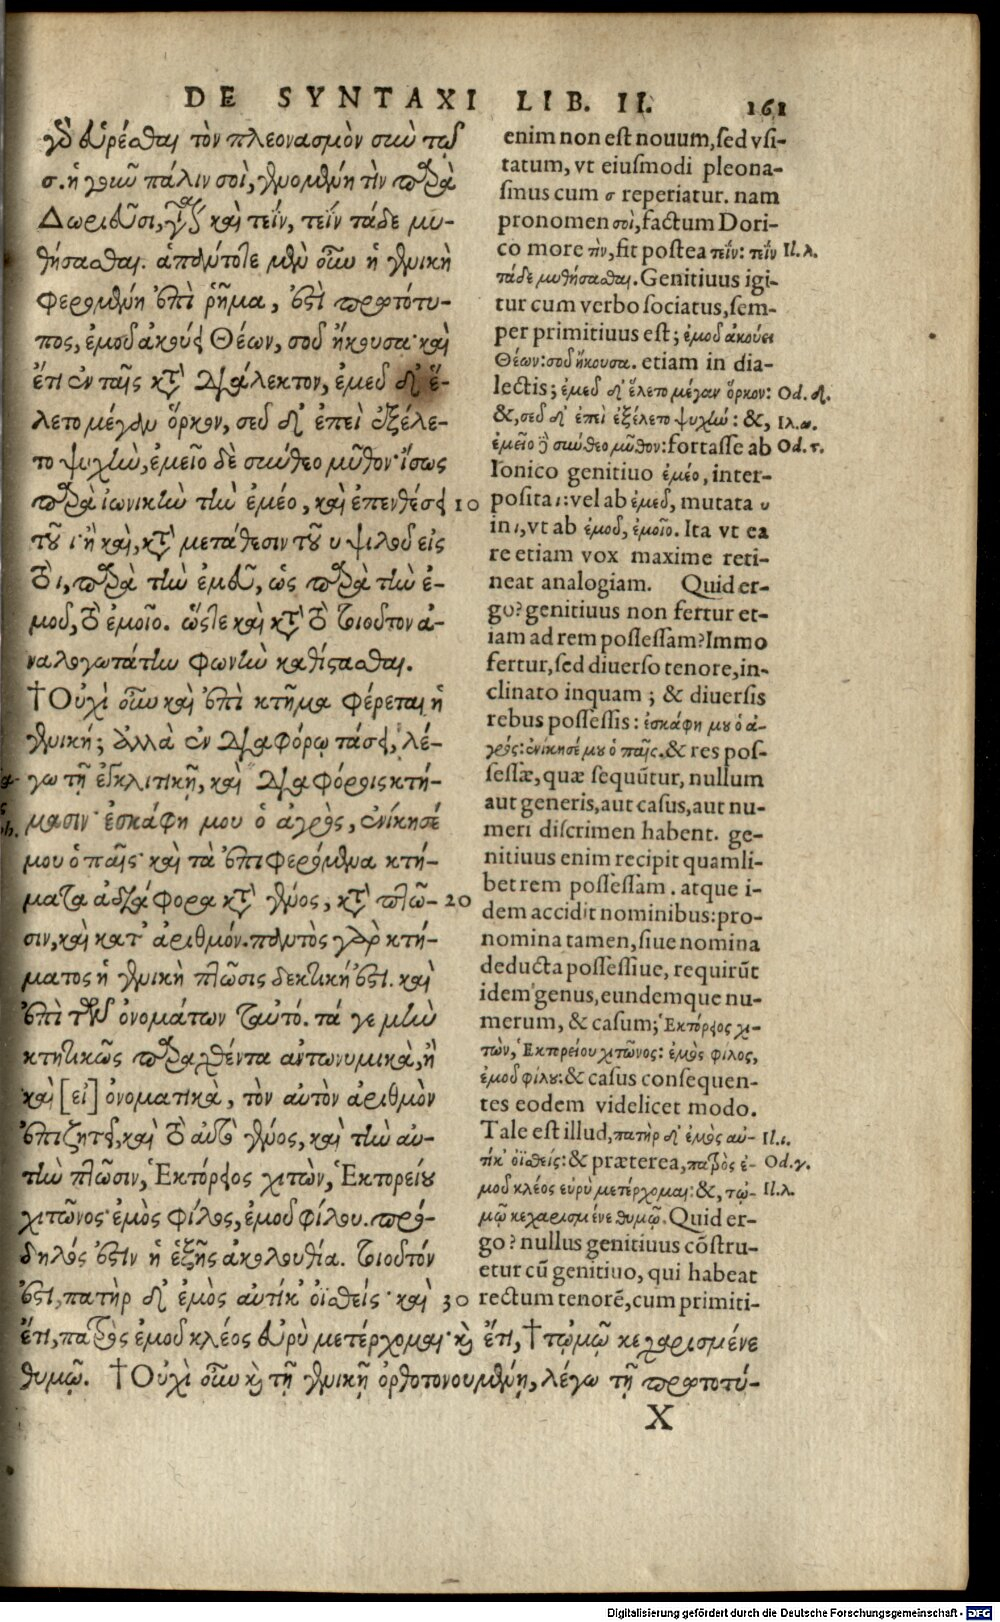 DE SYNTAXI LIB. II. 161
γὸ εὑρέσθαι τὸν πλεονασμὸν σὺν τῷ
σ. ἡ γοῦν πάλιν σοὶ, γενομένη τὶν παρὰ
Δωριεῦσι, γίνεται καὶ τεΐν, τεΐν τάδε μυ-
θήσασθαι. ἁπάντοτε μὲν οὖν ἡ γενικὴ
φερομένη ἐπὶ ῥῆμα, ἐστὶ πρωτότυ-
πος, ἐμοῦ ἀκούει Θέων, σοῦ ἤκουσα· καὶ
ἔτι ἐν ταῖς κατὰ διάλεκτον, ἐμεῦ δ' ἕ-
λετο μέγαν ὅρκον, σεῦ δ' ἐπεὶ ἐξέλε-
το ψυχὴν, ἐμεῖο δὲ σύνθεο μῦθον· ἴσως
παρὰ ἰωνικὴν τὴν ἐμέο, καὶ ἐπενθέσει 10
τοῦ ι· ἢ καὶ, κατὰ μετάθεσιν τοῦ υ ψιλοῦ εἰς
τὸ ι, παρὰ τὴν ἐμεῦ, ὡς παρὰ τὴν ἐ-
μοῦ, τὸ ἐμοῖο. ὥστε καὶ κατὰ τὸ τοιοῦτον ἀ-
ναλογωτάτην φωνὴν καθίστασθαι.
†Οὐχὶ οὖν καὶ ἐπὶ κτῆμα φέρεται ἡ
γενική; ἀλλὰ ἐν διαφόρῳ τάσει, λέ-
γω τῇ ἐγκλιτικῇ, καὶ διαφόροις κτή-
μασιν· ἐσκάφη μου ὁ ἀγρὸς, ἐνίκησέ
μου ὁ παῖς· καὶ τὰ ἐπιφερόμενα κτή-
ματα ἀδιάφορα κατὰ γένος, κατὰ πτῶ- 20
σιν, καὶ κατ' ἀριθμόν. παντὸς γὰρ κτή-
ματος ἡ γενικὴ πτῶσις δεκτικὴ ἐστι. καὶ
ἐπὶ τῶν ὀνομάτων ταὐτό. τά γε μὴν
κτητικῶς παραχθέντα ἀντωνυμικὰ, ἢ
καὶ [εἰ] ὀνοματικὰ, τὸν αὐτὸν ἀριθμὸν
ἐπιζητεῖ, καὶ τὸ αὐτὸ γένος, καὶ τὴν αὐ-
τὴν πτῶσιν, Ἑκτόρειος χιτὼν, Ἑκτορείου
χιτῶνος· ἐμὸς φίλος, ἐμοῦ φίλου. πρό-
δηλός ἐστιν ἡ ἑξῆς ἀκολουθία. τοιοῦτόν
ἐστι, πατὴρ δ' ἐμὸς αὐτίκ' ὀϊσθείς· καὶ 30
ἔτι, πατρὸς ἐμοῦ κλέος εὐρὺ μετέρχομαι· κὶ ἔτι, †τῷμῷ κεχαρισμένε
θυμῷ. †Οὐχὶ οὖν κὶ τῇ γενικῇ ὀρθοτονουμένῃ, λέγω τῇ πρωτοτύ-
enim non est nouum, sed vsi-
tatum, vt eiusmodi pleona-
smus cum σ reperiatur. nam
pronomen σοὶ, factum Dori-
co more τὶν, fit postea τεΐν: τεΐν Il. λ.
τάδε μυθήσασθαι. Genitiuus igi-
tur cum verbo sociatus, sem-
per primitiuus est; ἐμοῦ ἀκούει
Θέων: σοῦ ἤκουσα. etiam in dia-
lectis; ἐμεῦ δ' ἕλετο μέγαν ὅρκον: Od. δ.
&, σεῦ δ' ἐπεὶ ἐξέλετο ψυχὴν: &, Ιλ. ω.
ἐμεῖο δὲ σύνθεο μῦθον: fortasse ab Od. τ.
Ionico genitiuo ἐμέο, inter-
posita ι: vel ab ἐμεῦ, mutata υ
in ι, vt ab ἐμοῦ, ἐμοῖο. Ita vt ea
re etiam vox maxime reti-
neat analogiam. Quid er-
go? genitiuus non fertur et-
iam ad rem possessam? Immo
fertur, sed diuerso tenore, in-
clinato inquam; & diuersis
rebus possessis: ἐσκάφη μου ὁ ἀ-
γρός: ἐνίκησέ μου ὁ παῖς. & res pos-
sessæ, quæ sequūtur, nullum
aut generis, aut casus, aut nu-
meri discrimen habent. ge-
nitiuus enim recipit quamli-
bet rem possessam. atque i-
dem accidit nominibus: pro-
nomina tamen, siue nomina
deducta possessiue, requirūt
idem genus, eundemque nu-
merum, & casum; Ἑκτόρειος χι-
τὼν, Ἑκτορείου χιτῶνος: ἐμὸς φίλος,
ἐμοῦ φίλου: & casus consequen-
tes eodem videlicet modo.
Tale est illud, πατὴρ δ' ἐμὸς αὐ- Il. ι.
τίκ' ὀϊσθείς: & præterea, πατρὸς ἐ- Od. γ.
μοῦ κλέος εὐρὺ μετέρχομαι: &, τῷ- Il. λ.
μῷ κεχαρισμένε θυμῷ. Quid er-
go? nullus genitiuus cōstru-
etur cū genitiuo, qui habeat
rectum tenorē, cum primiti-
X
Digitalisierung gefördert durch die Deutsche Forschungsgemeinschaft - DFG